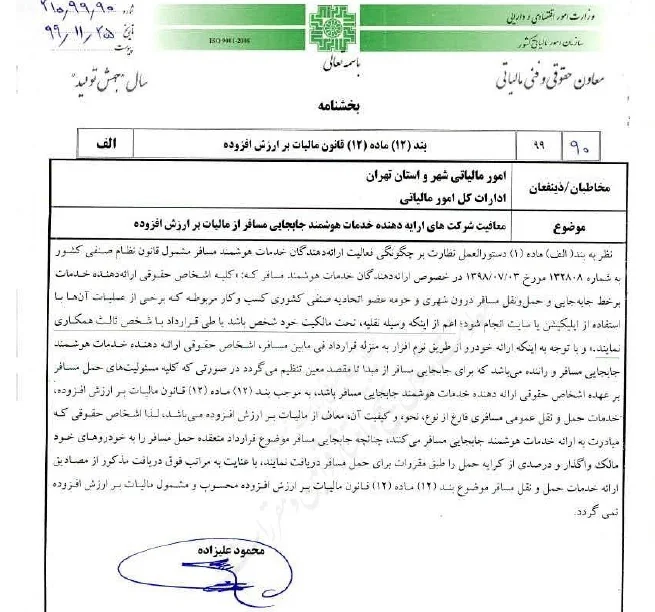 وزارت امور اقتصادی و دارایی
سازمان امور مالیاتی کشور
معاون حقوقی و فنی مالیاتی
ISO 9001-2008
باسمه تعالی
شماره ۲۱۰,۹۹,۹۰
تاریخ ۹۹,۱۱,۲۵
پیوست
سال "جهش تولید"
بخشنامه
۹۰ ۹۹ بند (۱۲) ماده (۱۲) قانون مالیات بر ارزش افزوده الف
مخاطبان/ذینفعان
امور مالیاتی شهر و استان تهران
ادارات کل امور مالیاتی
موضوع معافیت شرکت های ارایه دهنده خدمات هوشمند جابجایی مسافر از مالیات بر ارزش افزوده
نظر به بند( الف) ماده (۱) دستورالعمل نظارت بر چگونگی فعالیت ارائه‌دهندگان خدمات هوشمند مسافر مشمول قانون نظام صنفی کشور
به شماره ۱۳۲۸۰۸ مورخ ۱۳۹۸/۰۷/۰۳ در خصوص ارائه‌دهندگان خدمات هوشمند مسافر که: «کلیه اشخاص حقوقی ارائه‌دهنده خدمات
برخط جابه‌جایی و حمل‌ونقل مسافر درون شهری و حومه عضو اتحادیه صنفی کشوری کسب وکار مربوطه که برخی از عملیات آن‌ها با
استفاده از اپلیکیشن یا سایت انجام شود؛ اعم از اینکه وسیله نقلیه، تحت مالکیت خود شخص باشد یا طی قرارداد با شخص ثالث همکاری
نمایند.» و با توجه به اینکه ارائه خودرو از طریق نرم افزار به منزله قرارداد فی مابین مسافر، اشخاص حقوقی ارائه دهنده خدمات هوشمند
جابجایی مسافر و راننده می‌باشد که برای جابجایی مسافر از مبدا تا مقصد معین تنظیم می‌گردد در صورتی که کلیه مسئولیت‌های حمل مسافر
بر عهده اشخاص حقوقی ارائه دهنده خدمات هوشمند جابجایی مسافر باشد، به موجب بند (۱۲) ماده (۱۲) قانون مالیات بر ارزش افزوده،
خدمات حمل و نقل عمومی مسافری فارغ از نوع، نحوه و کیفیت آن، معاف از مالیات بر ارزش افزوده می‌باشد. لذا اشخاص حقوقی که
مبادرت به ارائه خدمات هوشمند جابجایی مسافر می‌کنند، چنانچه جابجایی مسافر موضوع قرارداد منعقده حمل مسافر را به خودروهای خود
مالک واگذار و درصدی از کرایه حمل را طبق مقررات برای حمل مسافر دریافت نمایند، با عنایت به مراتب فوق دریافت مذکور از مصادیق
ارائه خدمات حمل و نقل مسافر موضوع بند (۱۲) ماده (۱۲) قانون مالیات بر ارزش افزوده محسوب و مشمول مالیات بر ارزش افزوده
نمی گردد.
محمود علیزاده